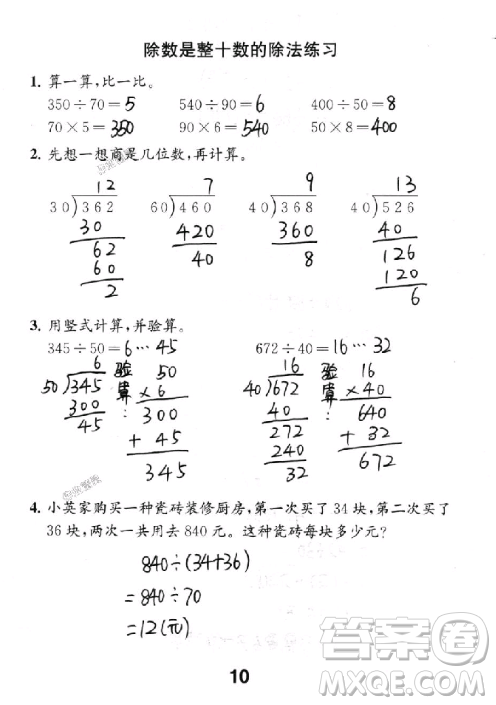 除数是整十数的除法练习
1. 算一算,比一比。
350÷70=5 540÷90=6 400÷50=8
70×5=350 90×6=540 50×8=400
2. 先想一想商是几位数,再计算。
12 7 9 13
30)362 60)460 40)368 40)526
30 420 360 40
62 40 8 126
60 120
2 6
3. 用竖式计算,并验算。
345÷50=6…45 672÷40=16…32
6 验 50 16 验 16
50)345 算: ×6 40)672 算: ×40
300 300 40 640
45 +45 272 +32
345 240 672
32
4. 小英家购买一种瓷砖装修厨房,第一次买了 34 块,第二次买了
36 块,两次一共用去 840 元。这种瓷砖每块多少元?
840÷(34+36)
=840÷70
=12(元)
10
答案圈
MXQE.COM